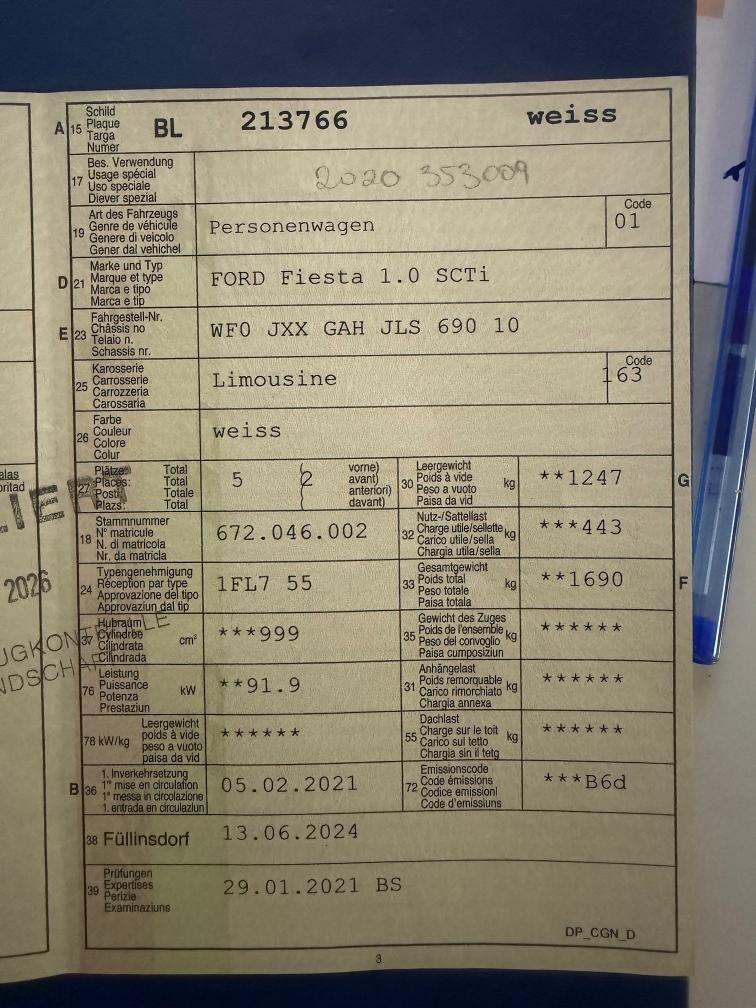 A 15 Schild
Plaque
Targa
Numer
BL 213766 weiss
17 Bes. Verwendung
Usage spécial
Uso speciale
Diever spezial
2020 353009
19 Art des Fahrzeugs
Genre de véhicule
Genere di veicolo
Gener dal vehichel
Personenwagen
Code
01
D 21 Marke und Typ
Marque et type
Marca e tipo
Marca e tip
FORD Fiesta 1.0 SCTi
E 23 Fahrgestell-Nr.
Châssis no
Telaio n.
Schassis nr.
WF0 JXX GAH JLS 690 10
25 Karosserie
Carrosserie
Carrozzeria
Carossaria
Limousine
Code
163
26 Farbe
Couleur
Colore
Colur
weiss
27 Plätze: Total
Places: Total
Posti: Totale
Plazs: Total
5 (2 vorne)
avant)
anteriori)
davant)
30 Leergewicht
Poids à vide
Peso a vuoto
Paisa da vid
kg
**1247
G
18 Stammnummer
N° matricule
N. di matricola
Nr. da matricla
672.046.002
32 Nutz-/Sattellast
Charge utile/sellette
Carico utile/sella
Chargia utila/sella
kg
***443
24 Typengenehmigung
Réception par type
Approvazione del tipo
Approvaziun dal tip
1FL7 55
33 Gesamtgewicht
Poids total
Peso totale
Paisa totala
kg
**1690
F
37 Hubraum
Cylindrée
Cilindrata
Cilindrada
cm³
***999
35 Gewicht des Zuges
Poids de l'ensemble
Peso del convoglio
Paisa cumposiziun
kg
******
76 Leistung
Puissance
Potenza
Prestaziun
kW
**91.9
31 Anhängelast
Poids remorquable
Carico rimorchiato
Chargia annexa
kg
******
78 kW/kg
Leergewicht
poids à vide
peso a vuoto
paisa da vid
******
55 Dachlast
Charge sur le toit
Carico sul tetto
Chargia sin il tetg
kg
******
B 36 1. Inverkehrsetzung
1re mise en circulation
1a messa in circolazione
1. entrada en circulaziun
05.02.2021
72 Emissionscode
Code émissions
Codice emissioni
Code d'emissiuns
***B6d
38 Füllinsdorf 13.06.2024
39 Prüfungen
Expertises
Perizie
Examinaziuns
29.01.2021 BS
DP_CGN_D
3
2026